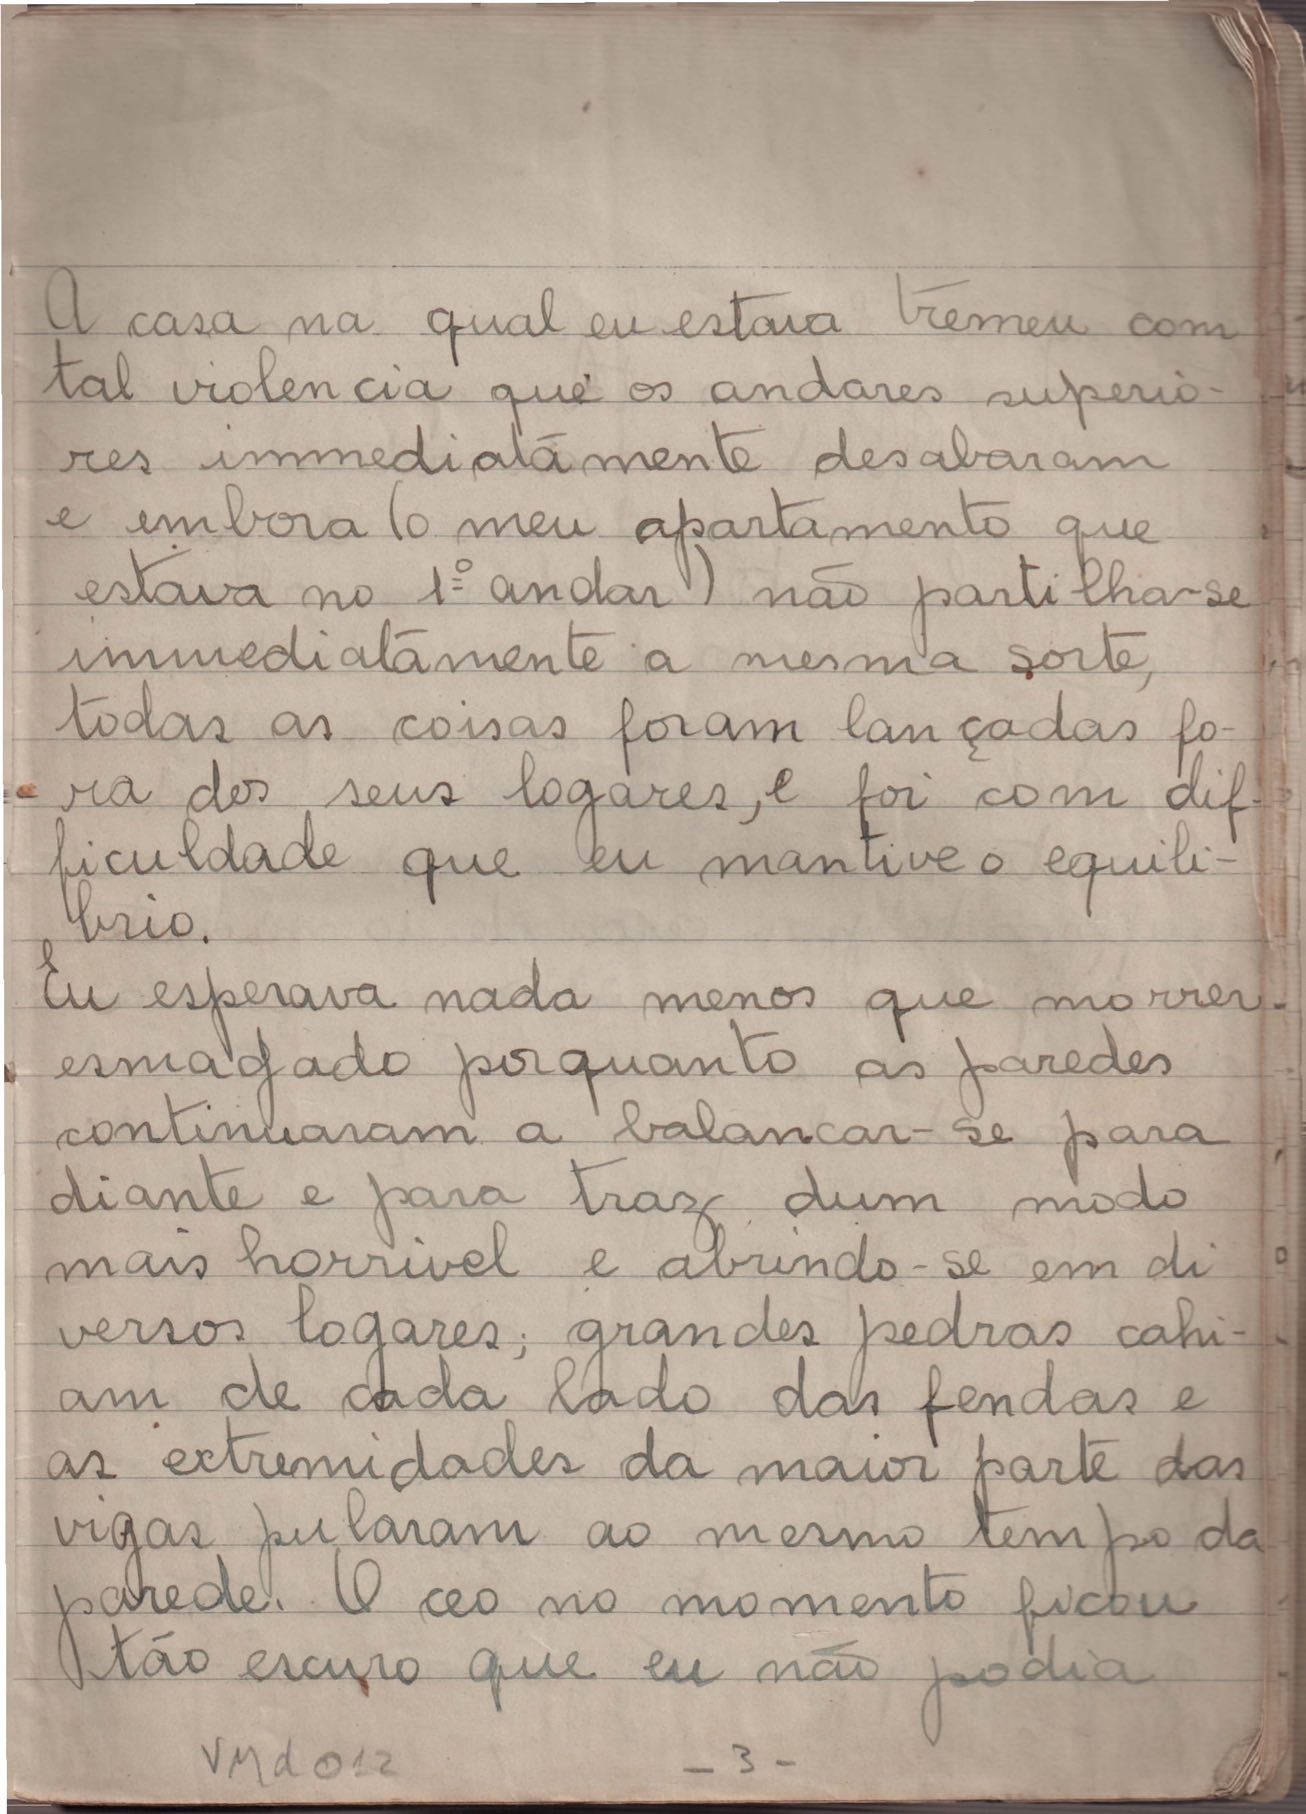 A casa na qual eu estava tremeu com
tal violencia que os andares superio-
res immediatâmente desabaram
e embora (o meu apartamento que
estava no 1º andar) não partilha-se
immediatâmente a mesma sorte,
todas as coisas foram lançadas fo-
ra dos seus logares, e foi com dif-
ficuldade que eu mantive o equili-
brio.
Eu esperava nada menos que morrer
esmagado porquanto as paredes
continuaram a balancar-se para
diante e para traz dum modo
mais horrivel e abrindo-se em di
versos logares; grandes pedras cahi-
am de cada lado das fendas e
as extremidades da maior parte das
vigas pularam ao mesmo tempo da
parede. O ceo no momento ficou
tão escuro que eu não podia
VMd012 - 3 -